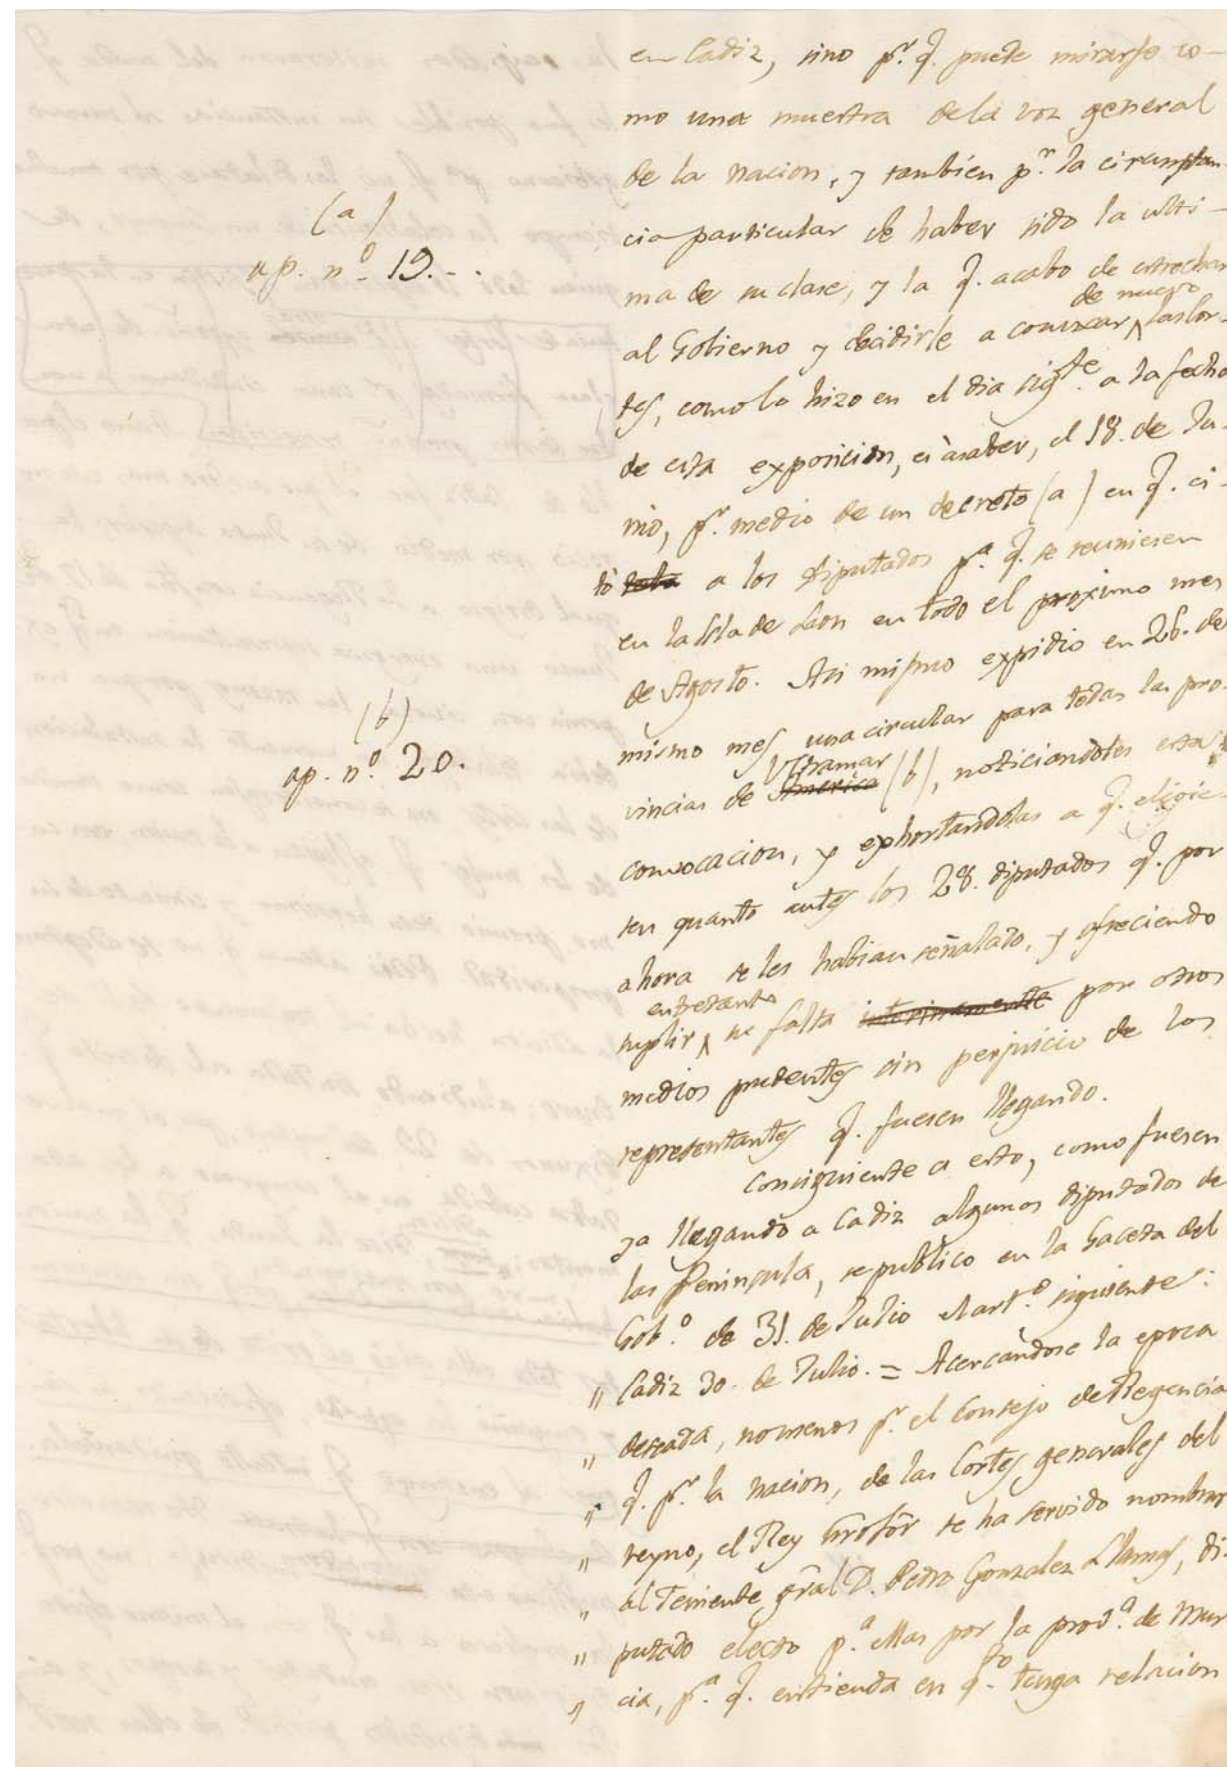 en Cadiz, sino pr. q. puede mirarse co-
mo una muestra dela voz general
de la nacion, y tambien pr. la circunstan-
cia particular de haber sido la ulti-
ma de su clase, y la q. acabo de estrechar
al Gobierno y decidirle a convocar de nuevo las Cor-
tes, como lo hizo en el dia sigte. a la fecha
de esta exposicion, es à saber, el 18. de Ju-
nio, pr. medio de un decreto (a) en q. ci-
(a)
ap. nº. 19. - .
tò a los diputados pa. q. se reuniesen
en la Isla de Leon en todo el proximo mes
de Agosto. Asi mismo expidio en 26. de
mismo mes, una circular para todas las pro-
vincias de Ultramar America (b), noticiandoles esta
(b)
ap. nº. 20.
convocacion, y exhortandolas a q. eligie-
sen quanto antes los 28. diputados q. por
ahora se les habian señalado, y ofreciendo
entretanto
suplir su falta interinamente por otros
medios prudentes sin perjuicio de los
representantes q. fuesen llegando.
Consiguiente a esto, como fuesen
ya llegando a Cadiz algunos diputados de
las Peninsula, se publico en la Gaceta del
Gobº. de 31. de Julio el artº. siguiente:
" Cadiz 30. de Julio. = Acercandose la epoca
" deseada, no menos pr. el Consejo de Regencia
" q. pr. la nacion, de las Cortes generales del
" reyno, el Rey nrõ Sõr se ha servido nombrar
" al Teniente grãl D. Pedro Gonzalez Llamas, di-
" putado electo pa. ellas por la prova. de Mur
" cia, pa. q. entienda en qto. tenga relacion